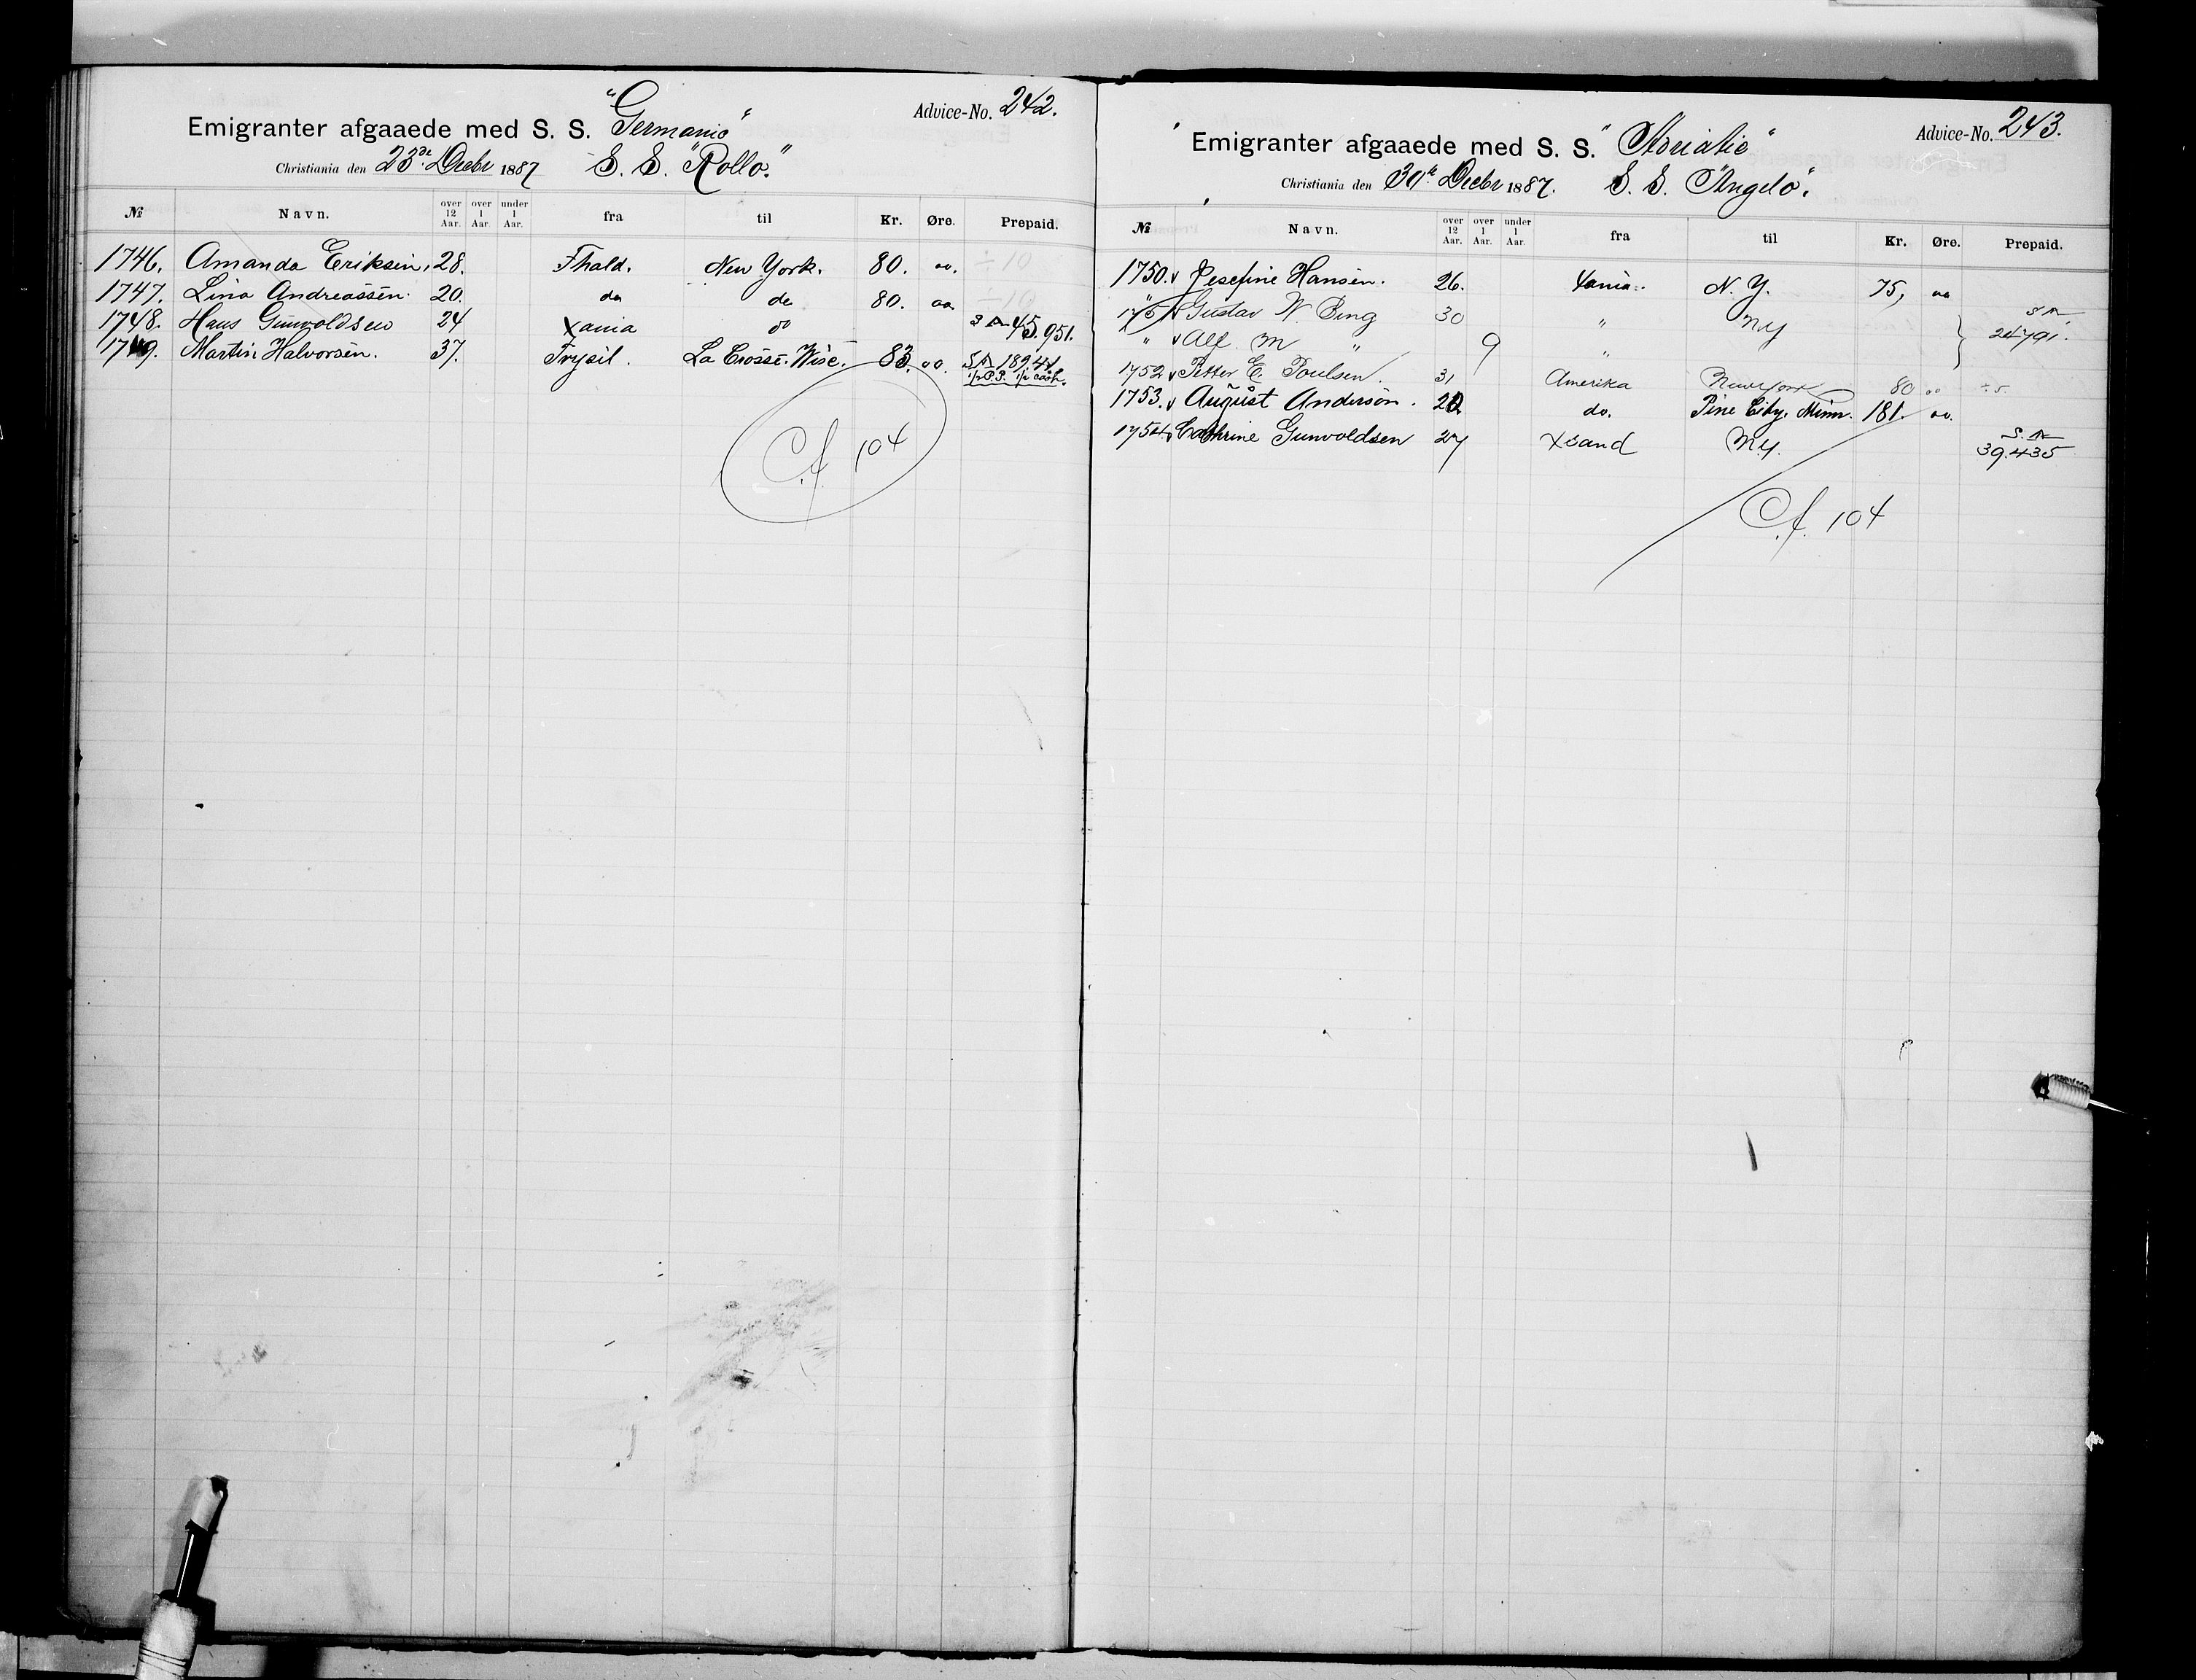 Emigranter afgaaede med S. S. "Germanic"
Advice-No. 242.
Christiania den 23de Decbr 1887 S. S. "Rollo."
№ Navn. over 12 Aar. over 1 Aar. under 1 Aar. fra til Kr. Øre. Prepaid.
1746. Amanda Eriksen, 28. Fhald. New York. 80. oo. ÷10
1747. Lina Andreassen. 20. do do 80. oo. ÷10
1748. Hans Gunvoldsen 24 Xania do 45.951.
1749. Martin Halvorsen. 37. Trysil. La Crosse. Wisc. 83. oo. 18944
1/2 P.P. 1/2 cash.
Cf. 104
Emigranter afgaaede med S. S. "Adriatic"
Advice-No. 243.
Christiania den 30te Decbr 1887. S. S. "Angelo".
№ Navn. over 12 Aar. over 1 Aar. under 1 Aar. fra til Kr. Øre. Prepaid.
1750. Josefine Hansen. 26. Xania. N. Y. 75, oo
1751 Gustav W. Bing 30 " NY 24791.
" Alf M " 9 "
1752 Petter E. Poulsen. 31 Amerika New York 80 oo ÷5.
1753. August Anderson. 20. do. Pine City, Minn. 181. oo.
1754 Cathrine Gunvoldsen 27 Xsand NY. 39.435
Cf. 104